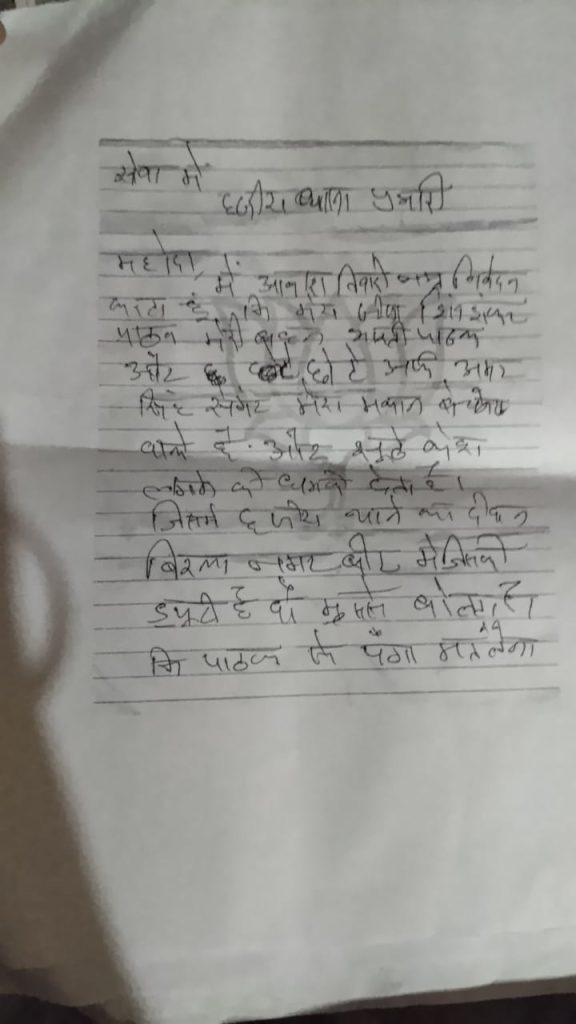 सेवा में
हजीरा थाना प्रभारी
महोदय,
में आकाश तिवारी नम्र निवेदन
करता हूं कि मेरा जीजा शिव शंकर
पाठक मेरी बहन पाठक
और छोटे उर्फ अमर
सिंह सेंगर मेरा मकान
वाले है. और झुठे केश
लगाने की धमकी देता है।
जिसमें हजीरा थाने का दीवान
बिरला नगर बीट में जिसकी
ड्यूटी है वो मुझसे बोला
कि पाठक से पंगा मत लेना